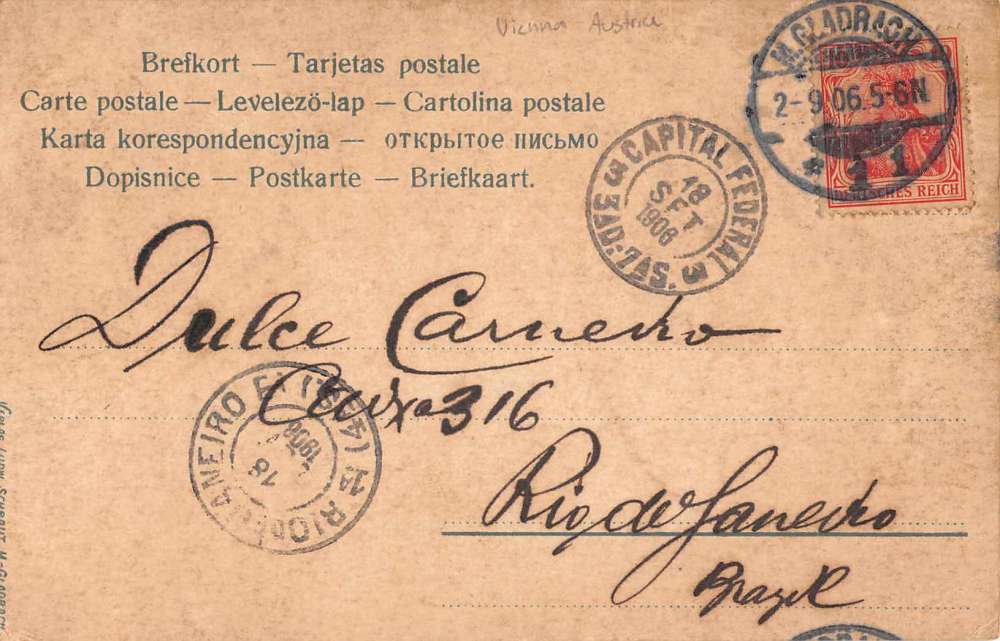 Vienna Austria
Brefkort — Tarjetas postale
Carte postale — Levelezö-lap — Cartolina postale
Karta korespondencyjna — открытое письмо
Dopisnice — Postkarte — Briefkaart.
M.GLADBACH
2-9.06.5-6N
* 1 1
DEUTSCHES REICH
3 CAPITAL FEDERAL 3
18
SET
1906
Dulce Carneiro
Caixa 316
RIO DE JANEIRO
18
1906
1ª
Rio de Janeiro
Brazil